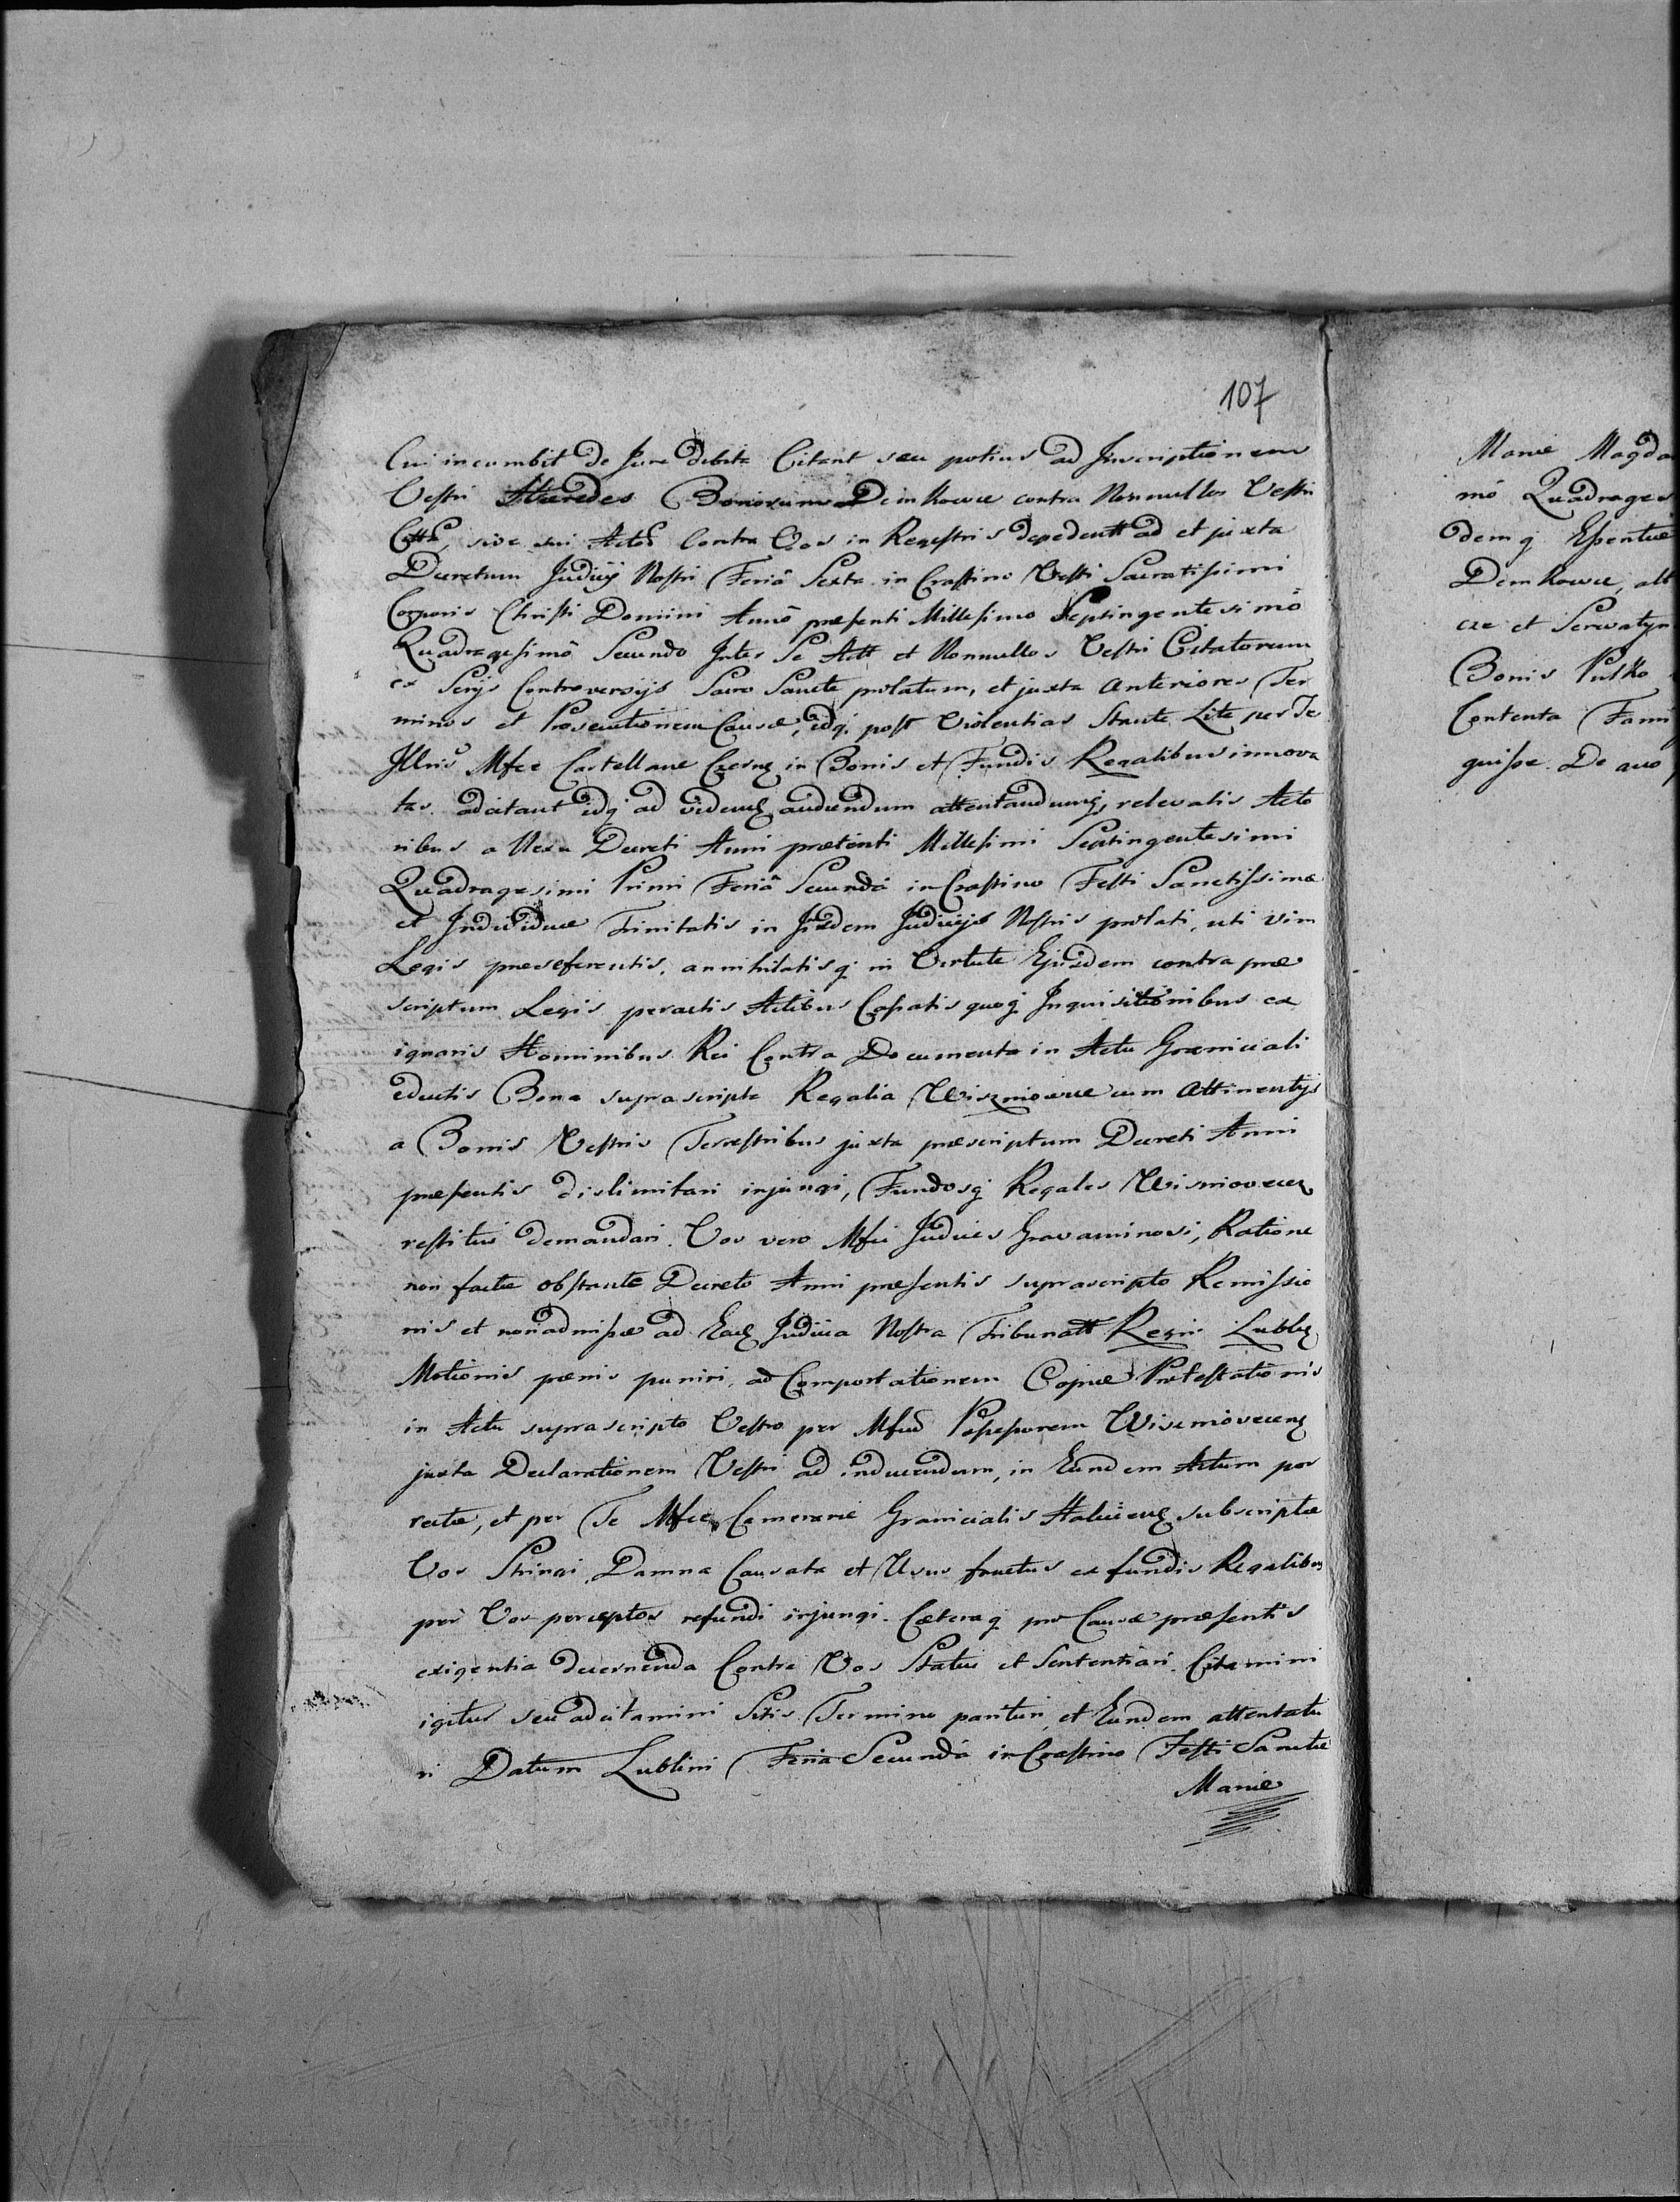 107
Cui incumbit de Jure debite Citant seu potius ad Inscriptionem
Vestri Haeredes Bonorum Demkowce contra Nonnullos Vestri
sive sui Actor Contra Vos in Regestris dependentt ad et juxta
Decretum Judicij Nostri Feriâ Sexta in Crastino Festi Sacratissimi
Corporis Christi Domini Annô praesenti Millesimo Septingentesimô
Quadragesimô Secundo Inter Se Actt et Nonnullos Vestri Citatorum
ex Serijs Controversijs Sacro Sancte prolatum, et juxta Anteriores Ter
minos et Prosecutionem Causae, idq. post Violentias Stante Lite per Te
Mfce Castellane Czerny in Bonis et Fundis Regalibus innova
tas. adcitant idq ad audiendum attentandumq, relevatis Acto
ribus a Nexu Decreti Anni Millesimi Septingentesimi
Quadragesimi Primi Feriâ Secundâ in Crastino Festi Sanctissimae
et Individuae Trinitatis in Iisdem Judicijs Nostris prolati, uti vim
Legis praeseferentis, annihilatisq in Virtute Ejusdem contra prae
scriptum Legis peractis Actibus Cassatis quoq Inquisitionibus ex
ignaris Hominibus Rei Contra Documenta in Actu Graniciali
eductis Bona suprascripta Regalia Wiszniowce cum Attinentijs
a Bonis Vestris Terrestribus juxta praescriptum Decreti Anni
praesentis dislimitari injungi, Fundosq Regales
restitui demandari. Vos vero Mfci Judices Gravaminosi, Ratione
non factae obstante Decreto Anni praesentis suprascripto Remissio
nis et non admissae ad Judicia Nostra Tribunatt Regni Lubly
Motionis poenis puniri, ad Comportationem Copiae Protestationis
in Actu suprascripto Vestro per Mfcu Possessorem
juxta Declarationem Vestri ad inducendum, in Eundem Actum por
rectae, et per Te Mfce Camerarie Granicialis subscriptae
Vos Stringi, Damna Causata et Usus fructus ex fundis Regalibus
per Vos perceptos refundi injungi. Caeteraq pro Causae praesentis
exigentia decernenda Contra Vos Statui et Sententiari. Citamini
igitur seu adcitamini Sitis Termino parituri, et Eundem attentatu
ri Datum Lublini Feria Secundâ in Crastino Festi Sanctae
Mariae
Mariae Magda
mô Quadrages
odemq
Demkowce,
cze et Serwatyn
Bonis
Contenta Fami
quisse. De quo